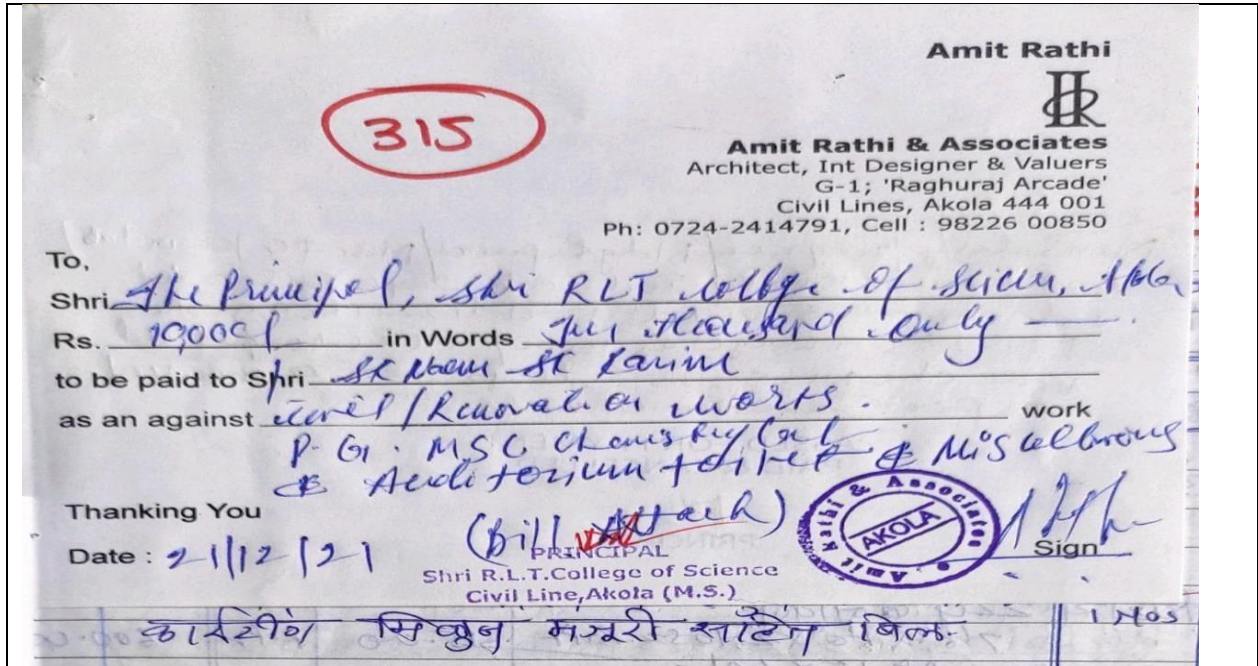 Amit Rathi
315
Amit Rathi & Associates
Architect, Int Designer & Valuers
G-1; 'Raghuraj Arcade'
Civil Lines, Akola 444 001
Ph: 0724-2414791, Cell : 98226 00850
To,
Shri The Principal, Shri RLT College of Science, Akola
Rs. 10,000/ in Words Ten thousand only
to be paid to Shri Sk Karim
as an against Civil / Renovation works. work
P.G. MSC Chemistry
& Auditorium toilet &
Thanking You
(Bill Attach)
Date : 21/12/21
PRINCIPAL
Shri R.L.T.College of Science
Civil Line,Akola (M.S.)
Amit Rathi & Associates
AKOLA
Sign
मिळुन मंजूरी बिल